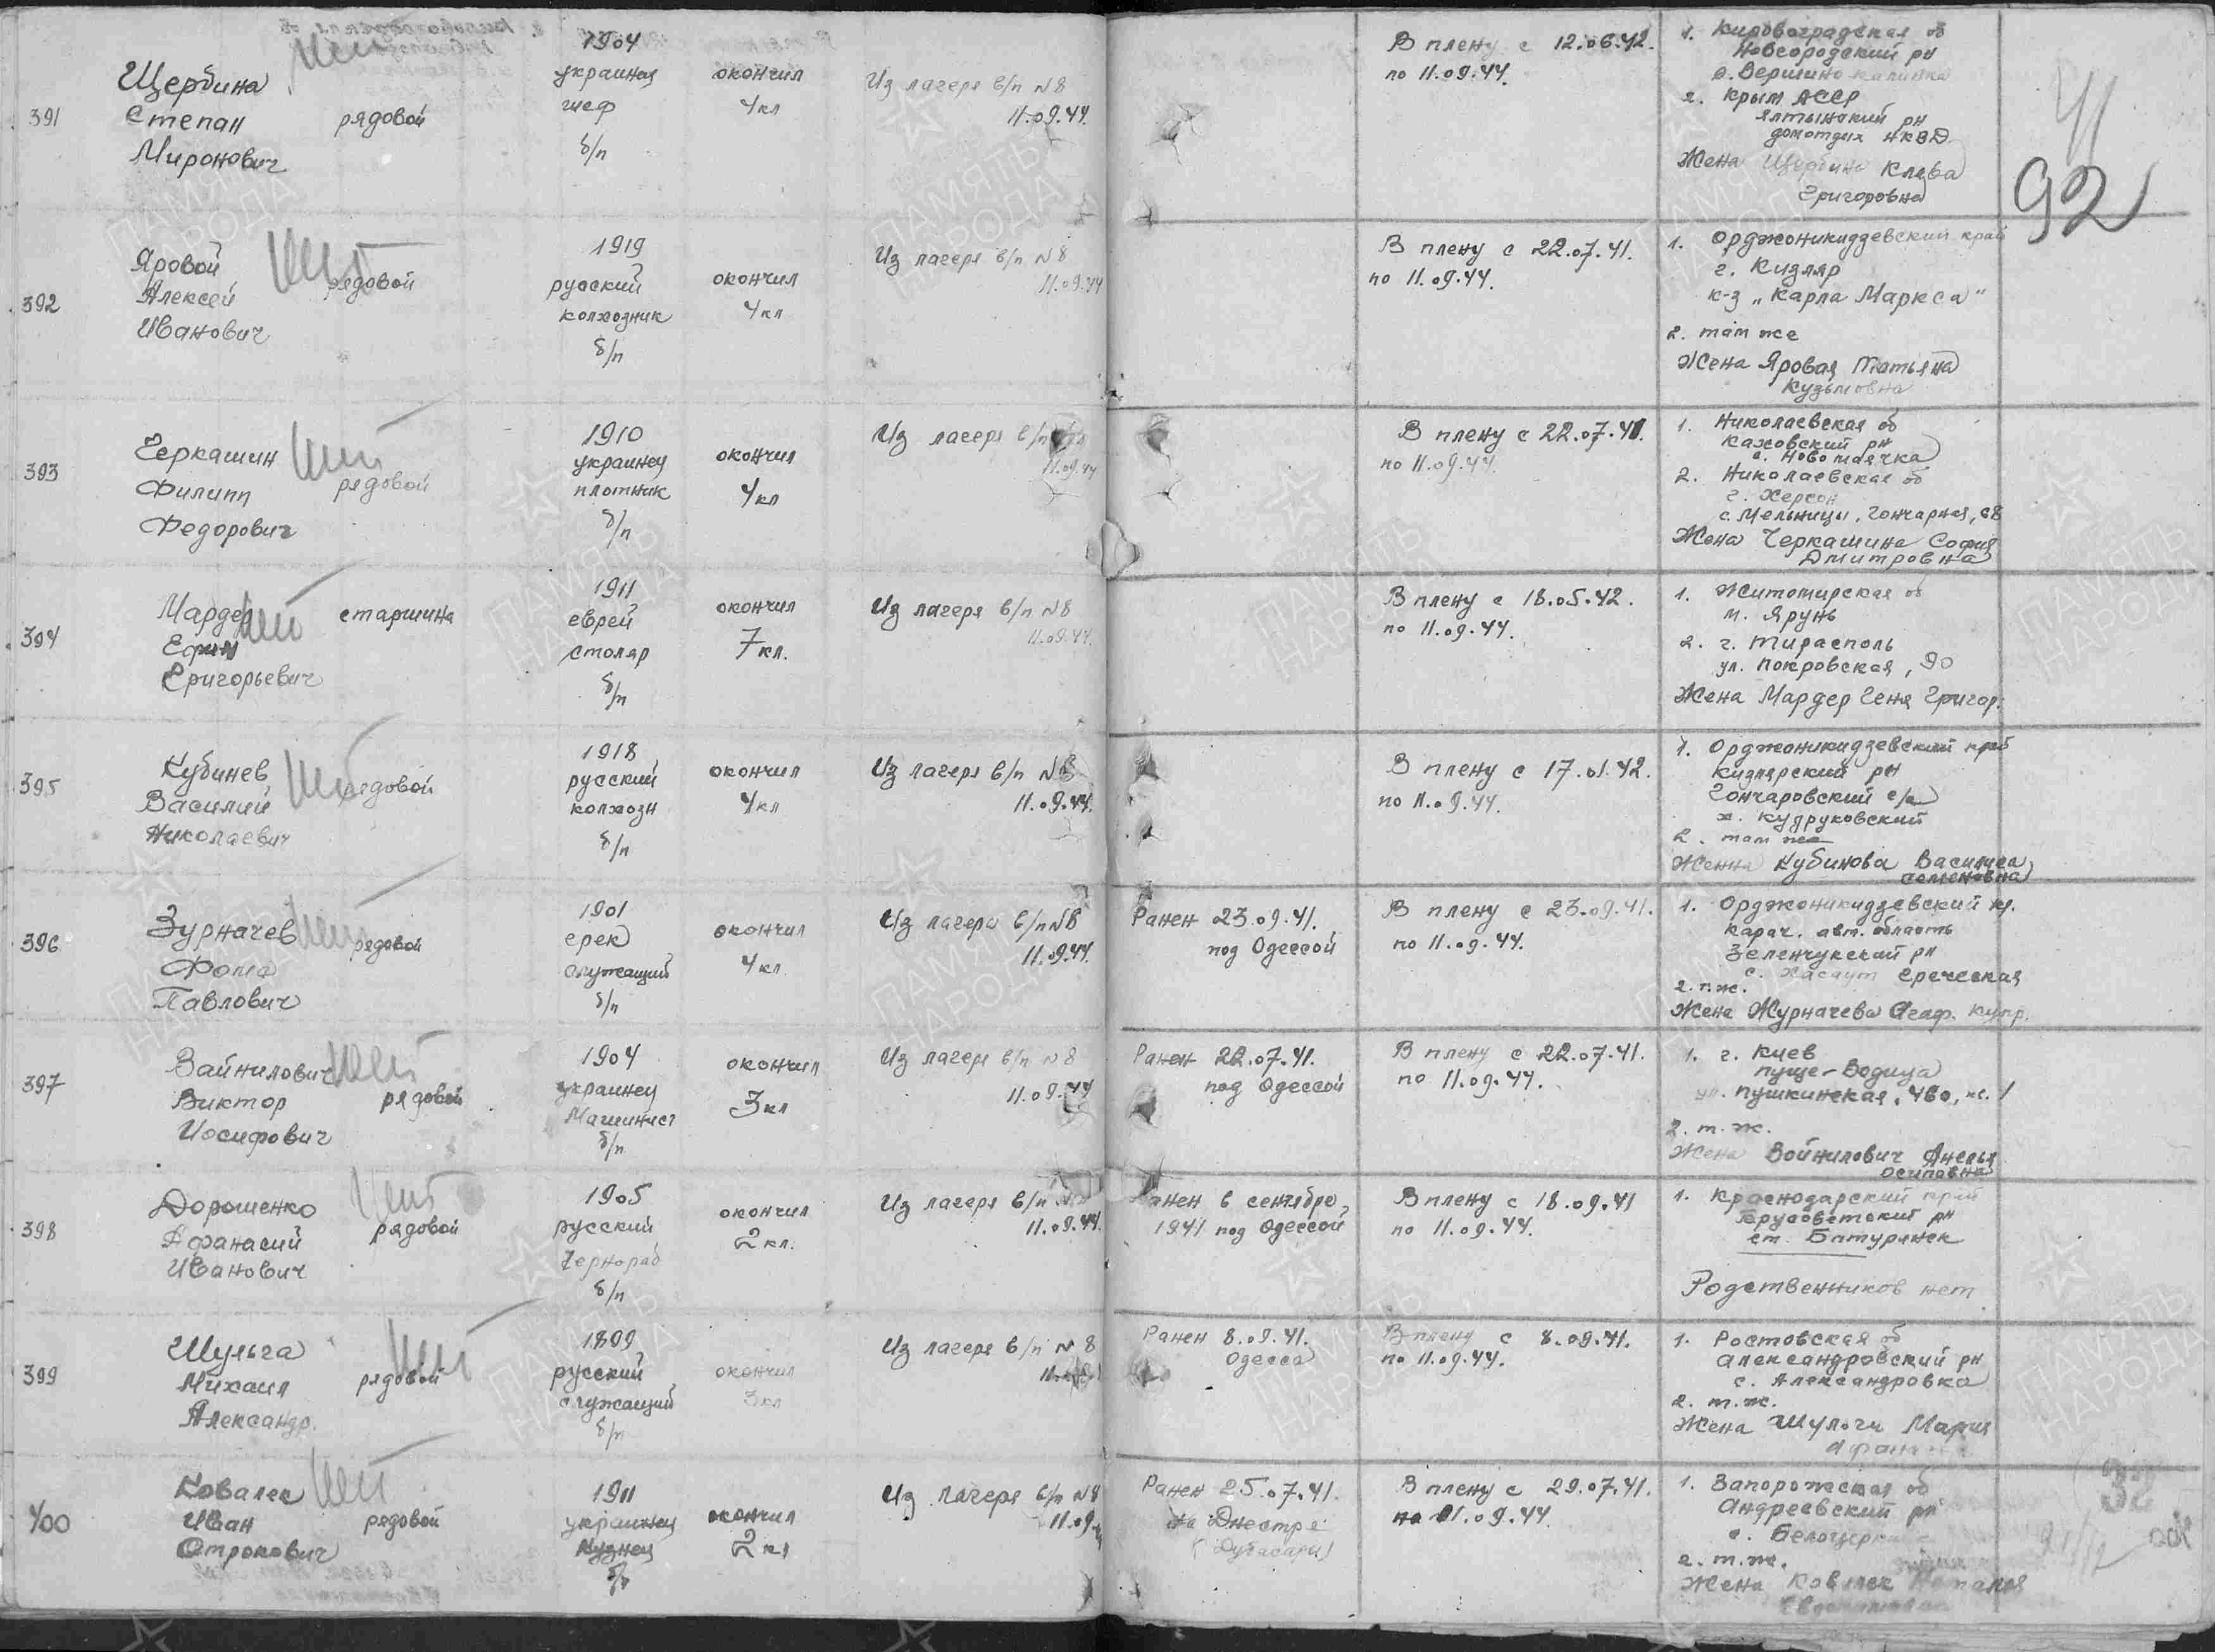 391
Щербина
Степан
Миронович
рядовой
1904
украинец
шеф
б/п
окончил
4 кл
Из лагеря в/п №8
11.09.44.
В плену с 12.06.42.
по 11.09.44.
1. Кировоградская об
Новгородский рн
2. Крым АССР
Ялтынский рн
домотдых НКВД
Жена Щербина Клава
Григоровна
92
392
Яровой
Алексей
Иванович
рядовой
1919
русский
колхозник
б/п
окончил
4 кл
Из лагеря в/п №8
11.09.44
В плену с 22.07.41.
по 11.09.44.
1. Орджоникидзевский край
г. Кизляр
к-з „Карла Маркса"
2. там же
Жена Яровая Татьяна
Кузьмовна
393
Черкашин
Филипп
Федорович
рядовой
1910
украинец
плотник
б/п
окончил
4 кл
Из лагеря в/п
11.09.44
В плену с 22.07.41.
по 11.09.44.
1. Николаевская об
Каховский рн
с. Новомаячка
2. Николаевская об
г. Херсон
с. Мельницы, Гончарная, 68
Жена Черкашина София
Дмитровна
394
Мардер
Ефим
Григорьевич
старшина
1911
еврей
столяр
б/п
окончил
7 кл.
Из лагеря в/п №8
11.09.44.
В плену с 18.05.42.
по 11.09.44.
1. Житомирская об
м. Ярунь
2. г. Тирасполь
ул. Покровская, 90
Жена Мардер Геня Григор.
395
Кубинев
Василий
Николаевич
рядовой
1918
русский
колхозн
б/п
окончил
4 кл
Из лагеря в/п №8
11.09.44.
В плену с 17.01.42.
по 11.09.44.
1. Орджоникидзевский край
Кизлярский рн
Гончаровский с/с
х. Кудруковский
2. там же
Женна Кубинова Василиса
Семеновна
396
Зурначев
Фома
Павлович
рядовой
1901
грек
служащий
б/п
окончил
4 кл.
Из лагеря в/п №8
11.09.44.
Ранен 23.09.41.
под Одессой
В плену с 23.09.41.
по 11.09.44.
1. Орджоникидзевский кр.
Карач. авт. область
Зеленчукский рн
с. Хасаут Греческая
2. т.ж.
Жена Журначева Агаф. Купр.
397
Вайнилович
Виктор
Иосифович
рядовой
1904
украинец
Машинист
б/п
окончил
3 кл
Из лагеря в/п №8
11.09.44
Ранен 22.07.41.
под Одессой
В плену с 22.07.41.
по 11.09.44.
1. г. Киев
Пуще-Водица
ул. Пушкинская, 460, к. 1
2. т.ж.
Жена Войнилович Анелья
Осиповна
398
Дорошенко
Афанасий
Иванович
рядовой
1905
русский
Чернораб
б/п
окончил
2 кл.
Из лагеря в/п №8
11.09.44.
Ранен в сентябре,
1941 под Одессой
В плену с 18.09.41
по 11.09.44.
1. Краснодарский край
рн
ст. Батуринск
Родственников нет
399
Шульга
Михаил
Александр.
рядовой
1899
русский
служащий
б/п
окончил
3 кл
Из лагеря в/п №8
Ранен 8.09.41.
Одесса
В плену с 8.09.41.
по 11.09.44.
1. Ростовская об
Александровский рн
с. Александровка
2. т.ж.
Жена Шульги Мария
400
Ковалек
Иван
рядовой
1911
украинец
Кузнец
б/п
окончил
2 кл
Из лагеря в/п №8
11.09.
Ранен 25.07.41.
на Днестре
(Дубасари)
В плену с 29.07.41.
по 11.09.44.
1. Запорожская об
Андреевский рн
2. т.ж.
Жена Ковалек